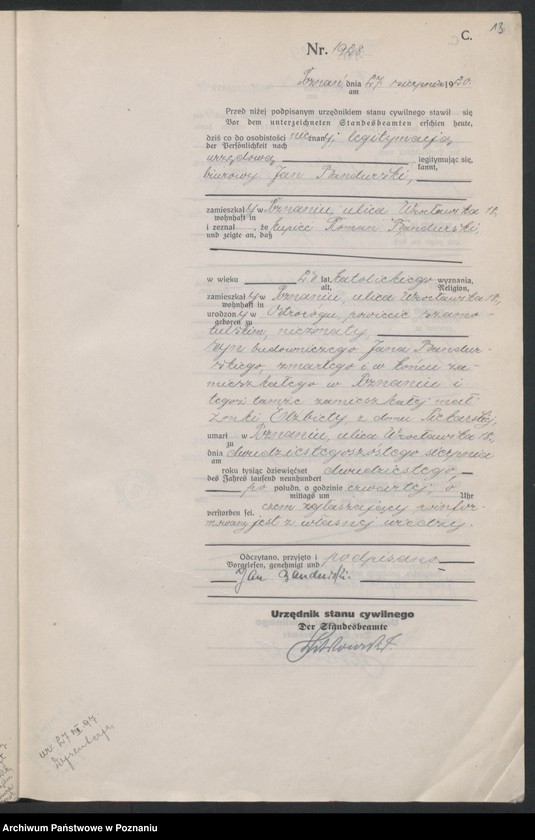 13
C.
Nr. 1928
Poznań, dnia 27 sierpnia 1920.
am
Przed niżej podpisanym urzędnikiem stanu cywilnego stawił się
Vor dem unterzeichneten Standesbeamten erschien heute,
dziś co do osobistości nieznany, legitymacją
der Persönlichkeit nach
urzędową, legitymując się,
kannt,
biurowy Jan Bandurski,
zamieszkały w Poznaniu, ulica Wrocławska 18,
wohnhaft in
i zeznał, że kupiec Roman Bandurski,
und zeigte an, daß
w wieku lat, katolickiego wyznania,
alt, Religion,
zamieszkały w Poznaniu, ulica Wrocławska 18,
wohnhaft in
urodzony w Ostrorogu, powiecie szamo-
geboren zu
tulskim, nieżonaty,
syn budowniczego Jana Bandur-
skiego, zmarłego i w końcu za-
mieszkałego w Poznaniu i
tegoż tamże zamieszkałej mał-
żonki, Elżbiety, z domu
umarł w Poznaniu, ulica Wrocławska 18,
zu
dnia dwudziestegoszóstego sierpnia
am
roku tysiąc dziewięćset dwudziestego,
des Jahres tausend neunhundert
po połudn. o godzinie czwartej, o
mittags um Uhr
verstorben sei. czem zgłaszający poinfor-
mowany jest z własnej wiedzy.
Odczytano, przyjęto i podpisano
Vorgelesen, genehmigt und
Jan Bandurski.
Urzędnik stanu cywilnego
Der Standesbeamte
ur. 27 97
Archiwum Państwowe w Poznaniu